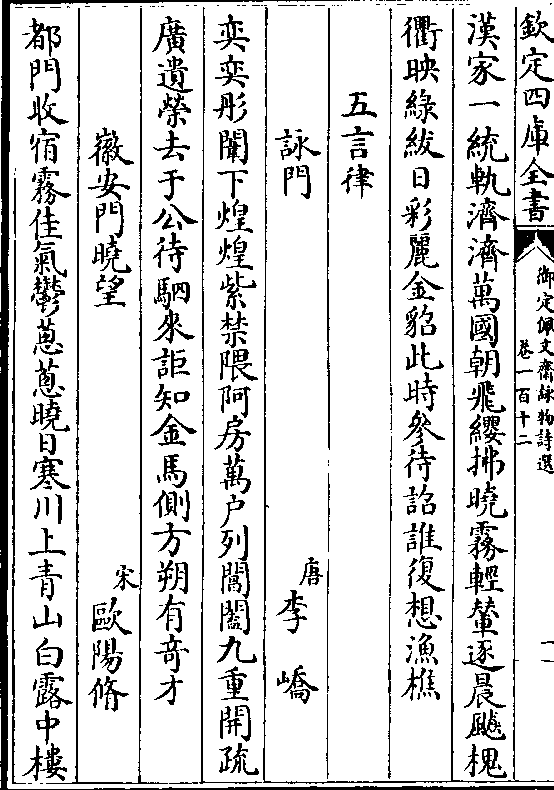 欽定四庫全書
御定佩文齋詠物詩選
卷一百十二
漢家一統軌濟濟萬國朝飛纓拂曉霧輕輦逐晨飈槐
衢映綠紱日彩麗金貂此時參待詔誰復想漁樵
五言律
詠門
唐李嶠
奕奕彤闈下煌煌紫禁隈阿房萬户列閶闔九重開疏
廣遺榮去于公待駟來詎知金馬側方朔有奇才
徽安門曉望
宋歐陽脩
都門收宿霧佳氣鬱蔥蔥曉日寒川上青山白露中樓